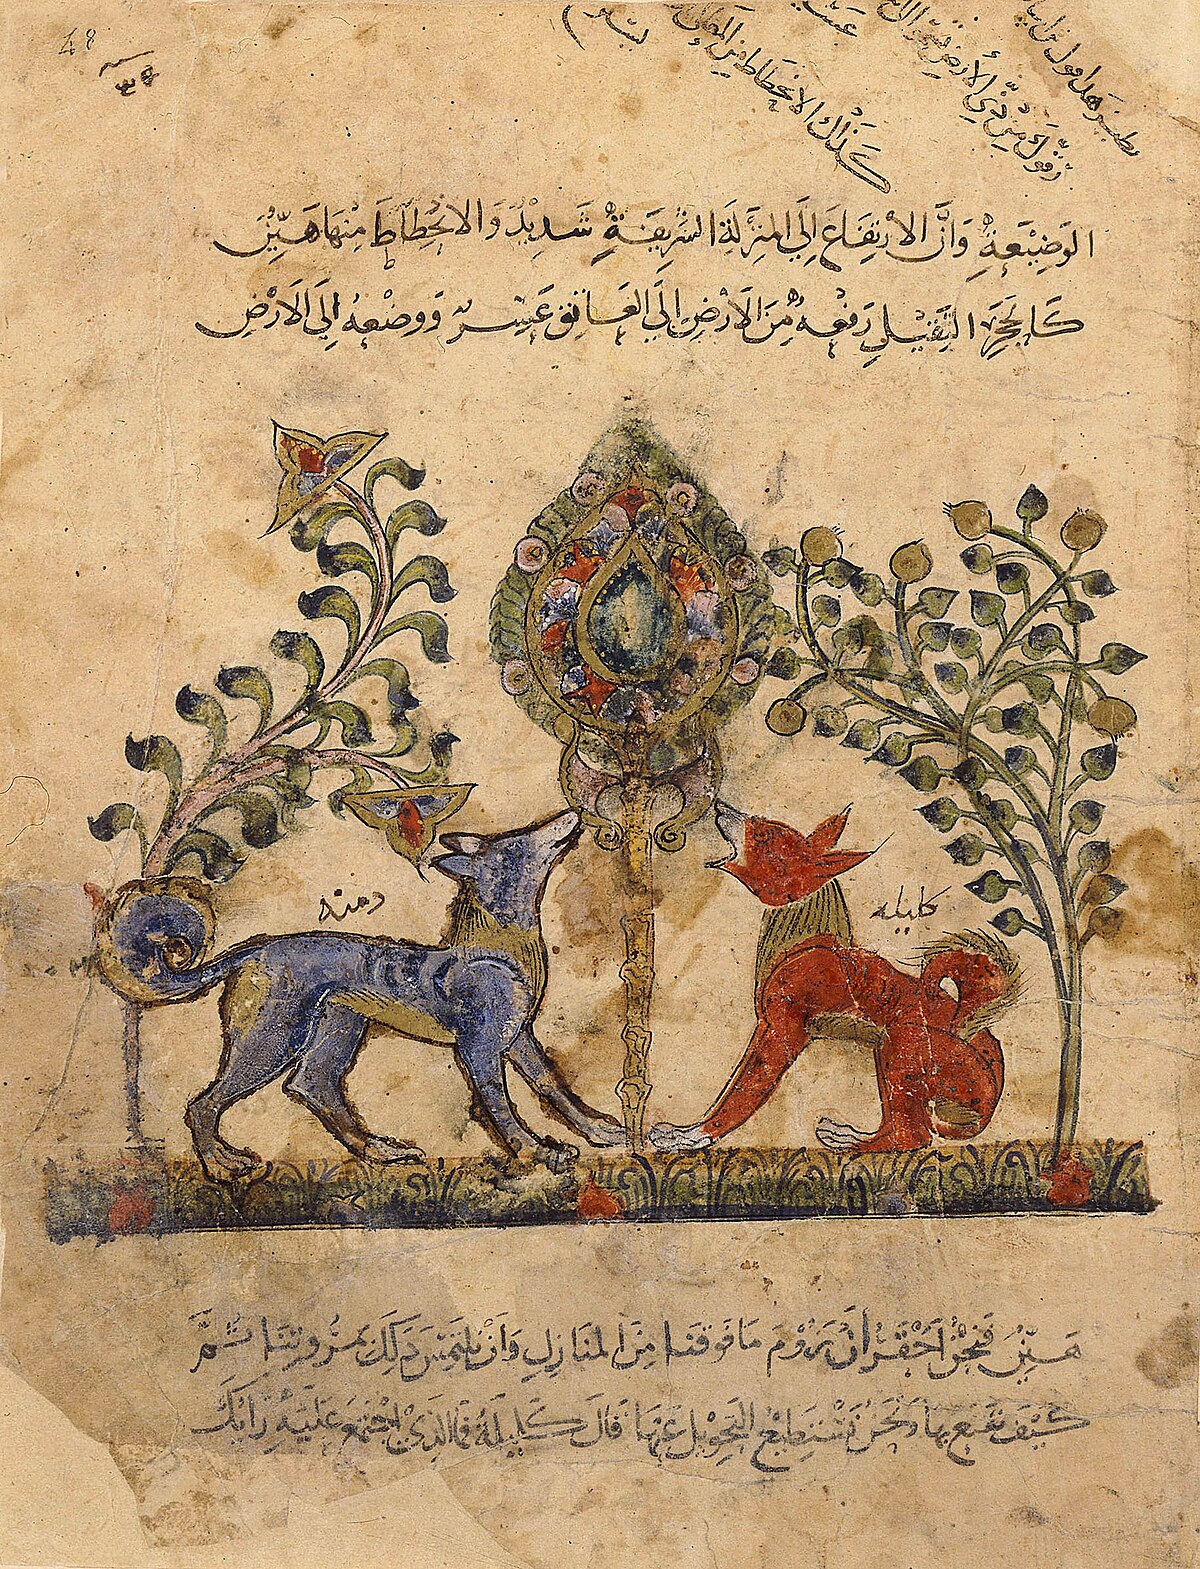 48
كذلك الانحطاط من
الوَضِيْعَةِ وَانَّ الارتِفَاعَ اِلَي المَنزِلَةِ الشَّرِيفَةِ شَدِيْدٌ وَالانحِطَاطَ مِنهَا هَيِّنٌ
كَالحَجَرِ الثَّقِيْلِ رَفعُهُ مِنَ الاَرْضِ اِلَي العَاتِقِ عَسِرٌ وَوضعُهُ اِلَي الاَرْضِ
دمنه
كليله
هَيِّنٌ فَنحْنُ اَحَقُّ اَنْ نَرُوْمَ مَا فَوقَنَا مِنَ المَنَازِلِ وَانْ نلتَمِسَ ذلِكَ بمروتنا ثُمَّ
كَيْفَ نقنَع بِهَا وَنحنُ نَسْتَطِيْعُ التحوِيلَ عَنهَا قَالَ كَلِيلَةُ فَمَا الذِيْ اجْتَمَعَ عَلَيْهِ رَايُكَ